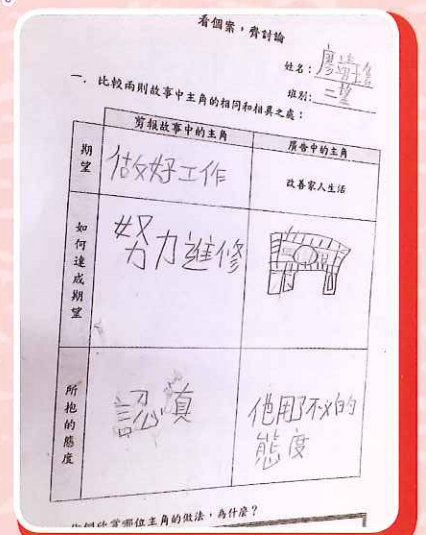 看個案，齊討論
姓名：廖
班別：二望
一． 比較兩則故事中主角的相同和相異之處：
剪報故事中的主角
廣告中的主角
期望
做好工作
改善家人生活
如何達成期望
努力進修
所抱的態度
認真
他用了不

的
態度
你們欣賞哪位主角的做法，為什麼？